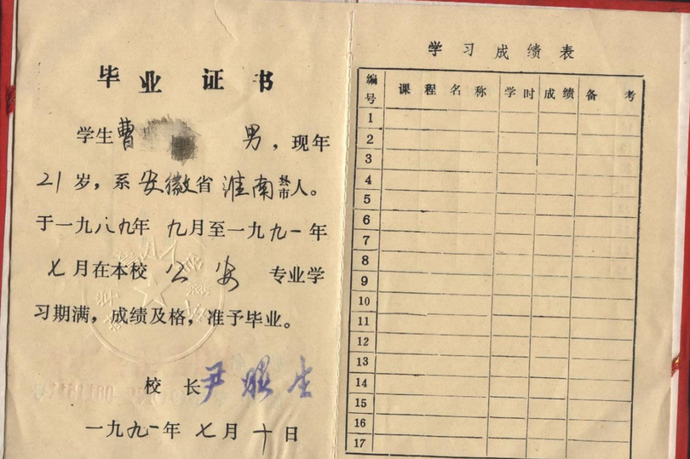 毕业证书
学生曹 男，现年
21岁，系安徽省淮南县市人。
于一九八九年九月至一九九一年
七月在本校公安专业学
习期满，成绩及格，准予毕业。
校长尹
一九九一年七月十日
学习成绩表
编号 课程名称 学时 成绩 备考
1
2
3
4
5
6
7
8
9
10
11
12
13
14
15
16
17